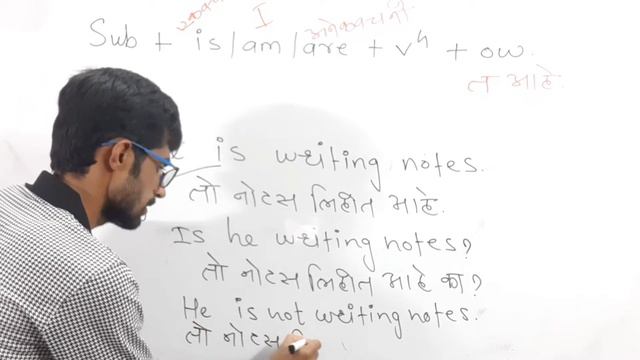 I अनेकवचनी
Sub + is/am/are + v⁴ + ow.
त आहे.
is writing notes.
तो नोटस लिहीत आहे.
Is he writing notes?
तो नोटस लिहीत आहे का?
He is not writing notes.
तो नोटस